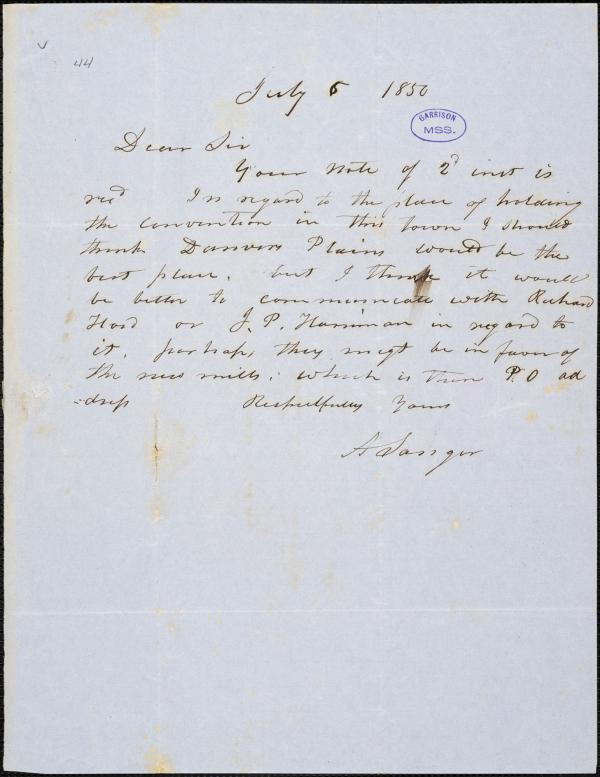 44
July 5 1850
GARRISON
MSS.
Dear Sir
Your Note of 2d inst is
recd In regard to the place of holding
the convention in this town I should
think Danvers Plains would be the
best place. but I think it would
be better to communicate with Richard
Hood or J. P. Harriman in regard to
it. perhaps they might be in favor of
the new mills. which is their P. O ad
=dress Respectfully Yours
A Sanger